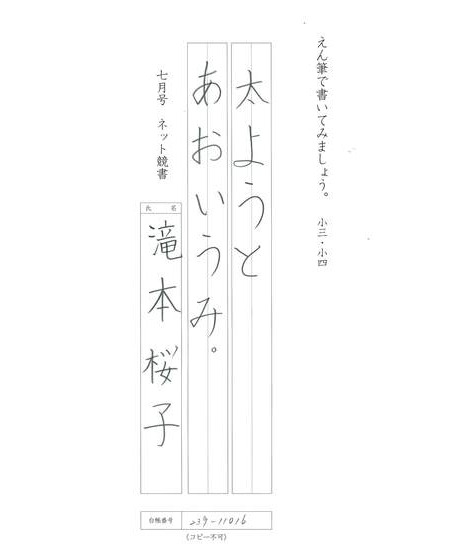 えん筆で書いてみましょう。 小三・小四
太ようと
あおいうみ。
七月号 ネット競書
氏 名
滝本桜子
台帳番号
(コピー不可)